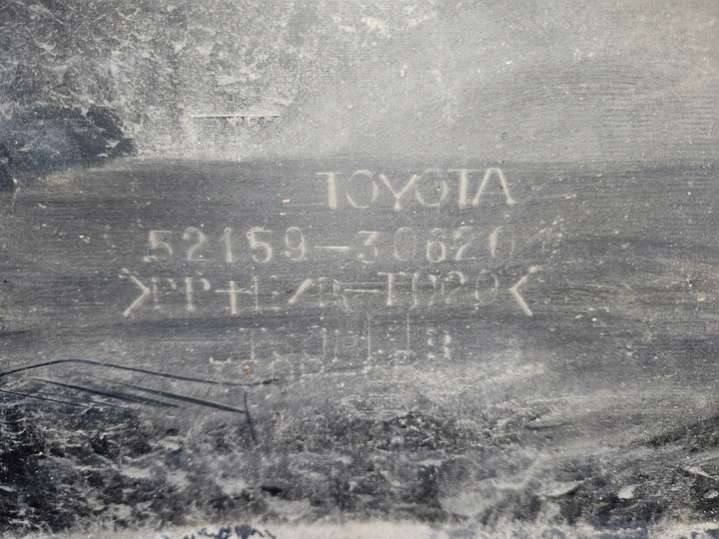 TOYOTA
52159-30620
>PP+E/R-TD20<